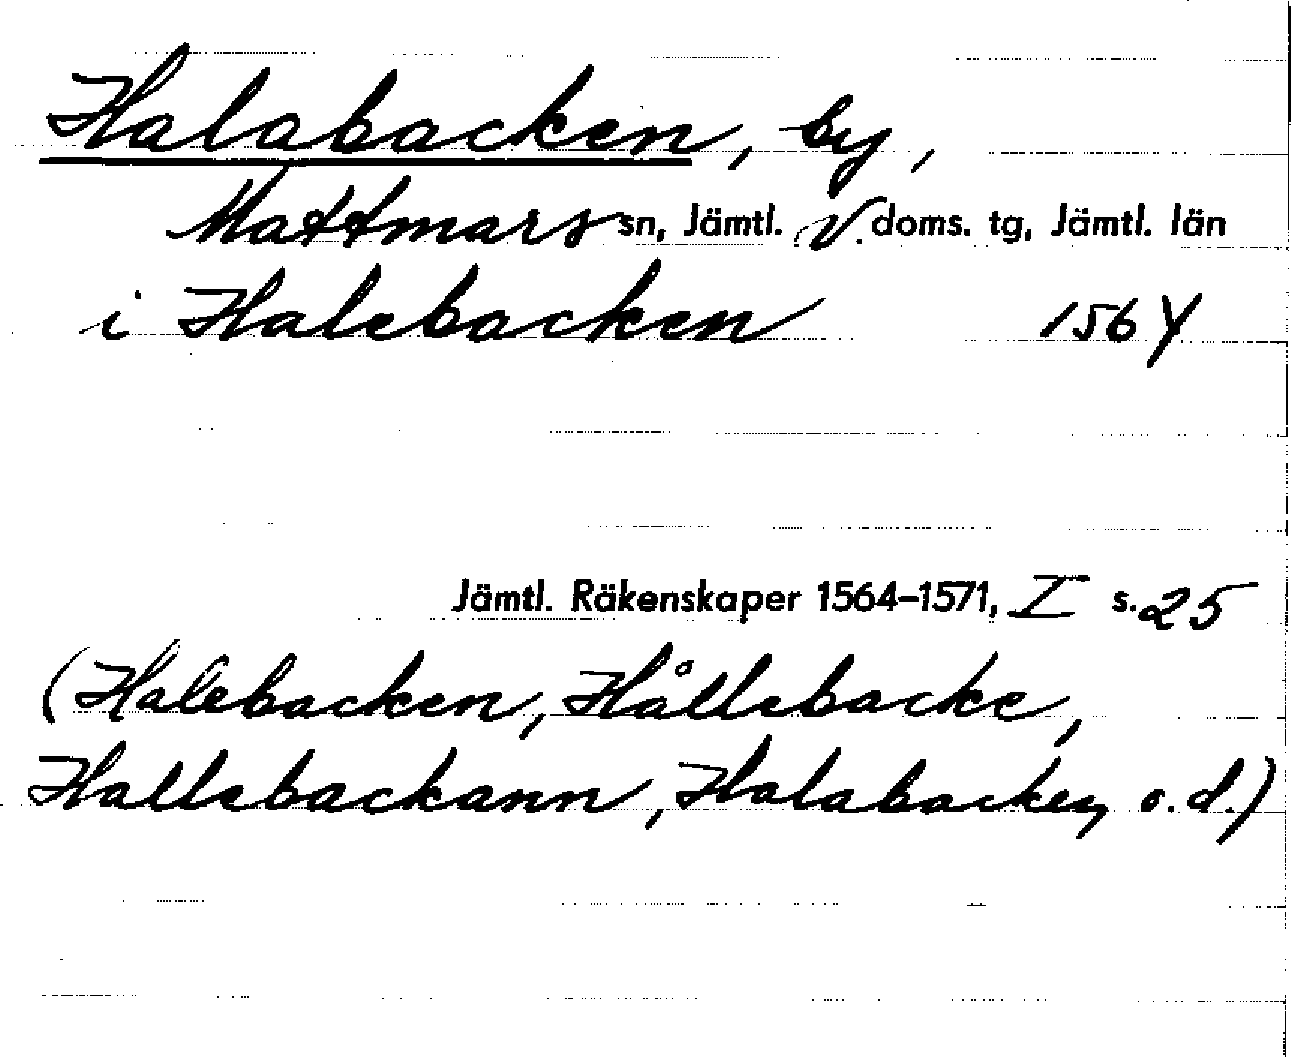 Halabacken, by,
Mattmars sn, Jämtl. V. doms. tg, Jämtl. län
i Halebacken 1564
Jämtl. Räkenskaper 1564–1571, I s. 25
(Halebacken, Hållebacke,
Hallebackann, Halabacken o.d.)